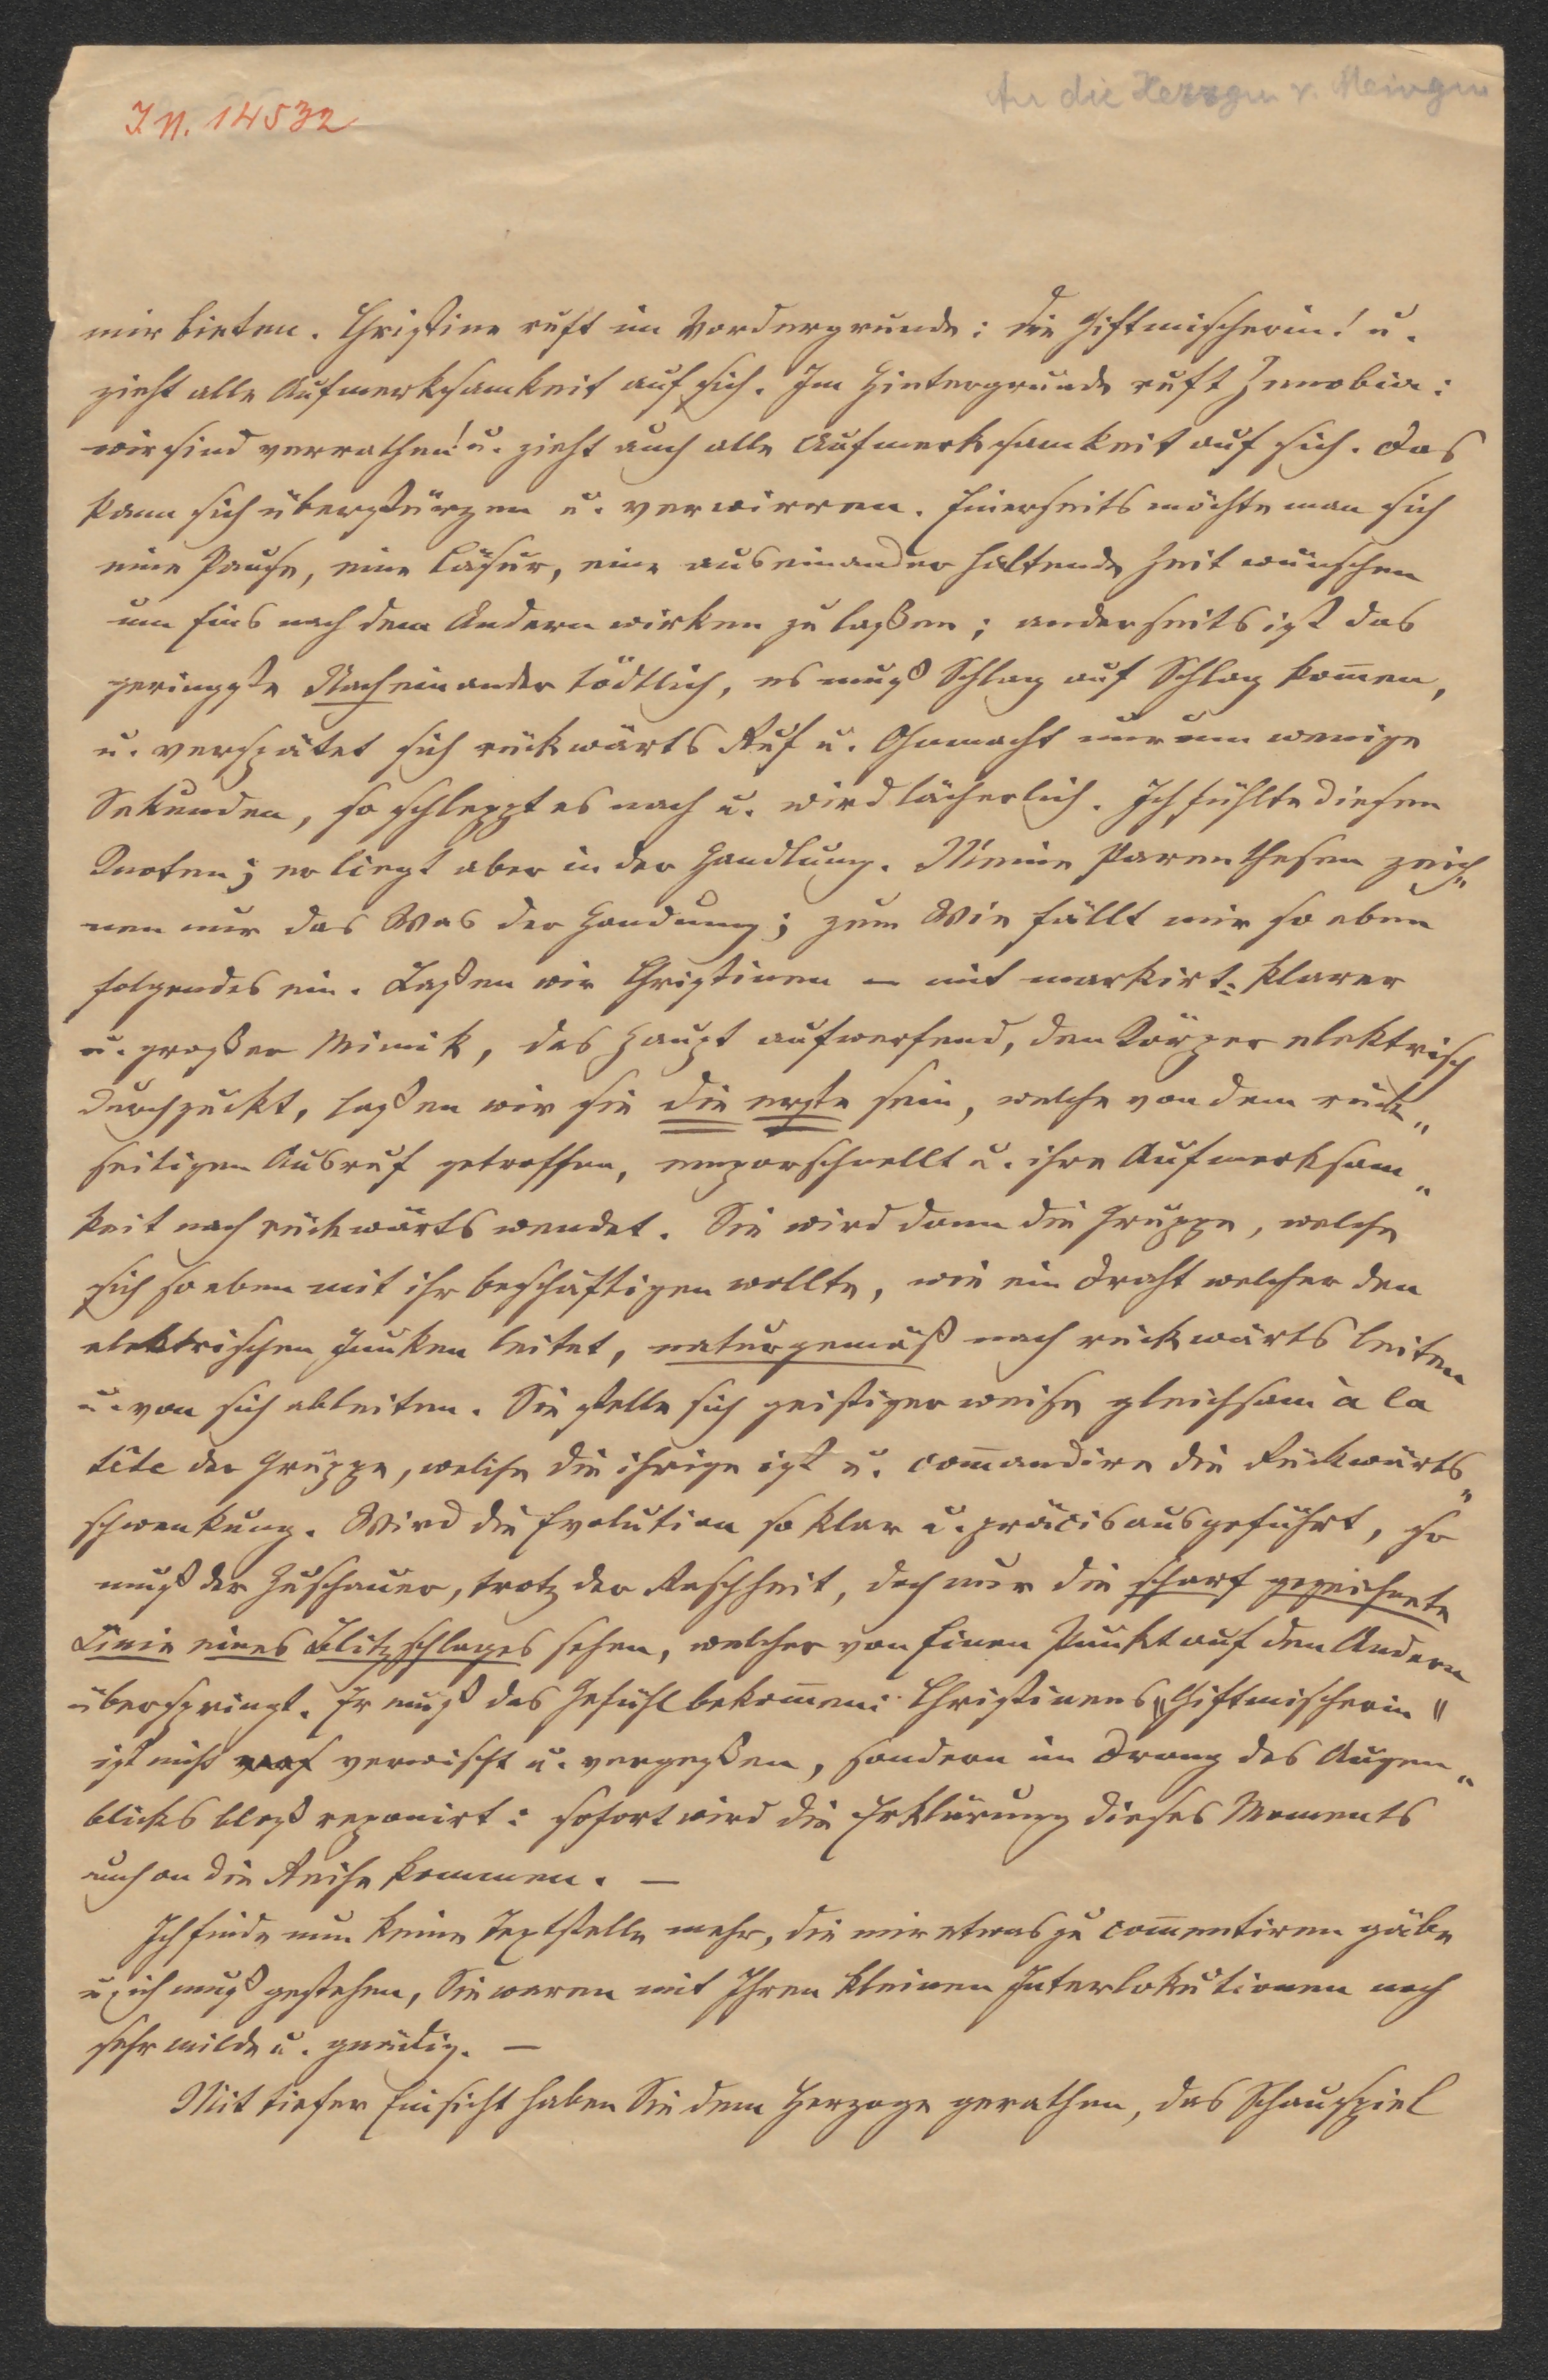 I. N. 14532
An die Herzgin v. Meingen
mir bieten. Christine ruft im Vordergrunde: die Giftmischerin! u.
zieht alle Aufmerksamkeit auf sich. Im Hintergrunde ruft Zenobia:
wir sind verrathen! u. zieht auch alle Aufmerksamkeit auf sich. Das
kann sich überstürzen u. verwirren. Einerseits möchte man sich
eine Pause, eine Cäsur, eine auseinander haltende Zeit wünschen
um Eins nach dem Andern wirken zu laßen; anderseits ist das
geringste Nacheinander tödtlich, es muß Schlag auf Schlag kom̄en,
u. verspätet sich rückwärts Ruf u. Ohnmacht nur um wenige
Sekunden, so schleppt es nach u. wird lächerlich. Ich fühlte diesen
Knoten; er liegt aber in der Handlung. Meine Parenthesen zeich„
nen nur das Was der Handung; zum Wie fällt mir so eben
folgendes ein. Laßen wir Christinen – mit markirt-klarer
u. großer Mimik, das Haupt aufwerfend, den Körper elektrisch
durchzuckt, laßen wir sie die erste sein, welche von dem rück„
seitigen Ausruf getroffen, emporschnellt u. ihre Aufmerksam„
keit nach rückwärts wendet. Sie wird dann die Gruppe, welche
sich so eben mit ihr beschäftigen wollte, wie ein Draht welcher den
elektrischen Funken leitet, naturgemäß nach rückwärts leiten
u. von sich ableiten. Sie stelle sich geistiger weise gleichsam à la
tête der Gruppe, welche die ihrige ist u. com̄andire die Rückwärts„
schwenkung. Wird die Evolution so klar u. präcis ausgeführt, so
muß der Zuschauer, trotz der Raschheit, doch nur die scharf gezeichnete
Linie eines Blitzschlages sehen, welcher von Einen Punkt auf den Andern
überspringt. Er muß das Gefühl bekom̄en: Christinens „Giftmischerin"
ist nicht verwischt u. vergeßen, sondern im Drang des Augen„
blicks bloß reponirt: sofort wird die Erklärung dieses Moments
auch an die Reihe kommen. –
Ich finde nun keine Textstelle mehr, die mir etwas zu com̄entiren gäbe
u. ich muß gestehen, Sie waren mit Ihren kleinen Interlokutionen noch
sehr milde u. gnädig. –
Mit tiefer Einsicht haben Sie dem Herzoge gerathen, das Schauspiel